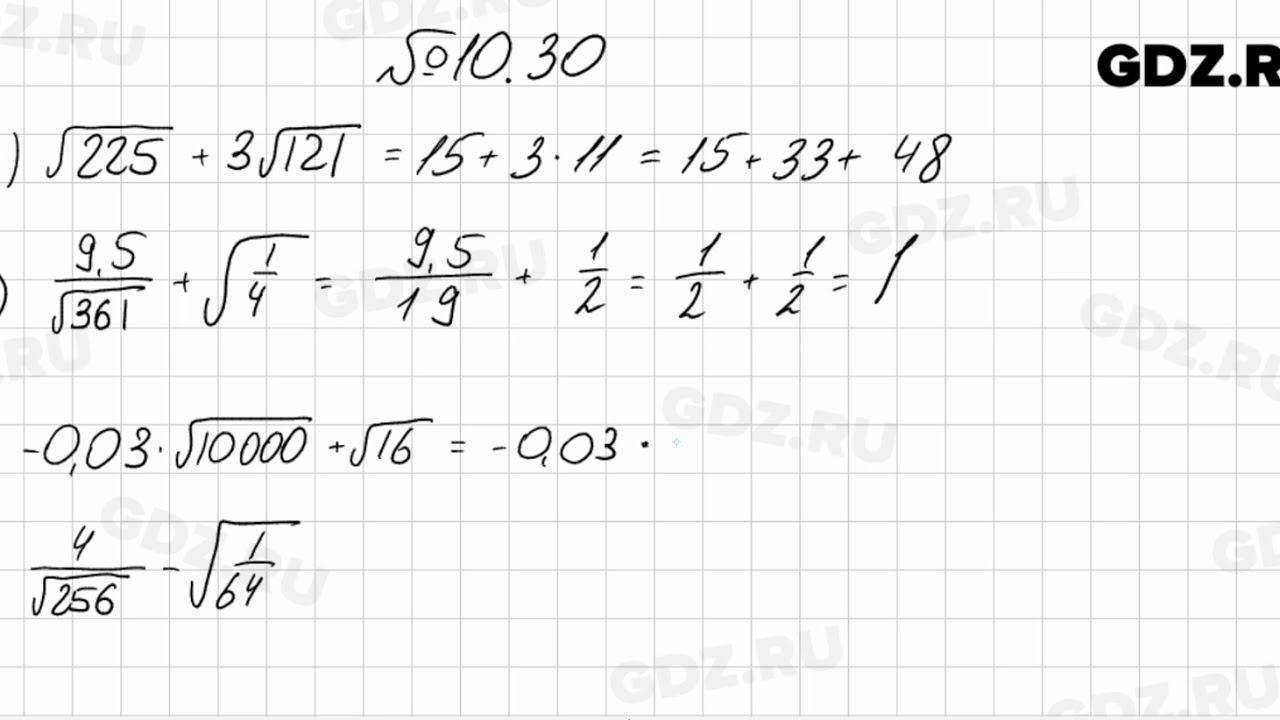 №10.30
GDZ.R
) √225 + 3√121 = 15 + 3 · 11 = 15 + 33 + 48
) 9,5/√361 + √(1/4) = 9,5/19 + 1/2 = 1/2 + 1/2 = 1
-0,03 · √10000 + √16 = -0,03 ·
4/√256 - √(1/64)
GDZ.RU
GDZ.RU
GDZ.RU
GDZ.RU
GDZ.RU
GDZ.RU
GDZ.RU
GDZ.RU